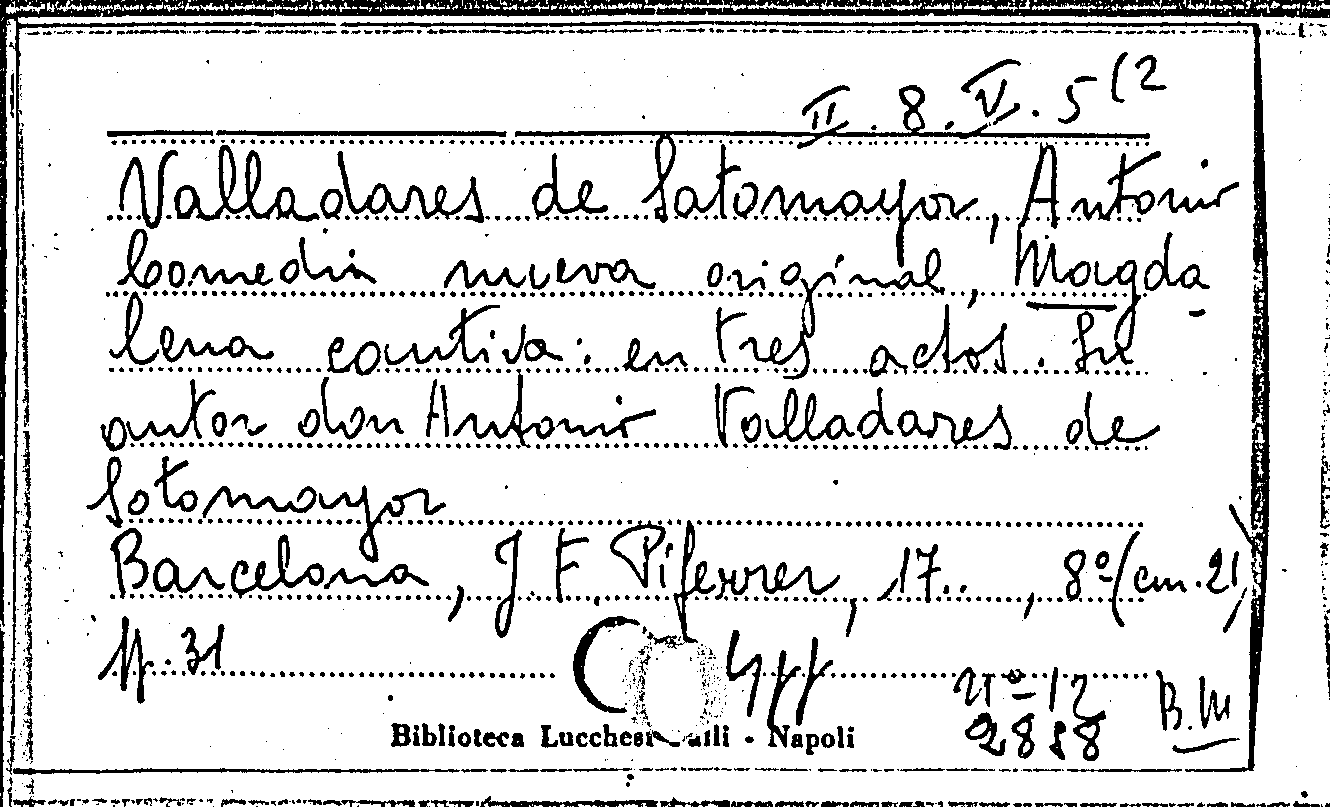 II. 8. V. 5 (2
Valladares de Sotomayor, Antonio
Comedia nueva original, Magda
lena cautiva: en tres actos. Su
autor don Antonio Valladares de
Sotomayor
Barcelona, J. F. Piferrer, 17.., 8º (cm. 21)
pp. 31
nº 12
2858 B. M
Biblioteca Lucchesi - Napoli